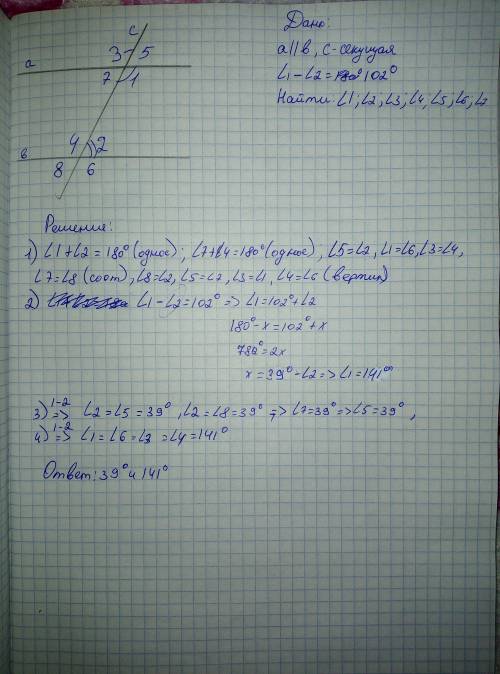 c
3 5
a
7 1
4 2
в
8 6
Дано:
a||b, c-секущая
∠1-∠2=102°
Найти: ∠1; ∠2, ∠3, ∠4, ∠5, ∠6, ∠7
Решение:
1) ∠1+∠2=180° (однос); ∠7+∠4=180° (однос), ∠5=∠2, ∠1=∠6, ∠3=∠4,
∠7=∠8 (соот), ∠8=∠2, ∠5=∠7, ∠3=∠1, ∠4=∠6 (вертик)
2) ∠1-∠2=102° => ∠1=102°+∠2
180°-x=102°+x
78°=2x
x=39°-∠2=>∠1=141°
3) 1-2 => ∠2=∠5=39°, ∠2=∠8=39° => ∠7=39°=>∠5=39°,
4) 1-2 => ∠1=∠6=∠3=∠4=141°
Ответ: 39° и 141°